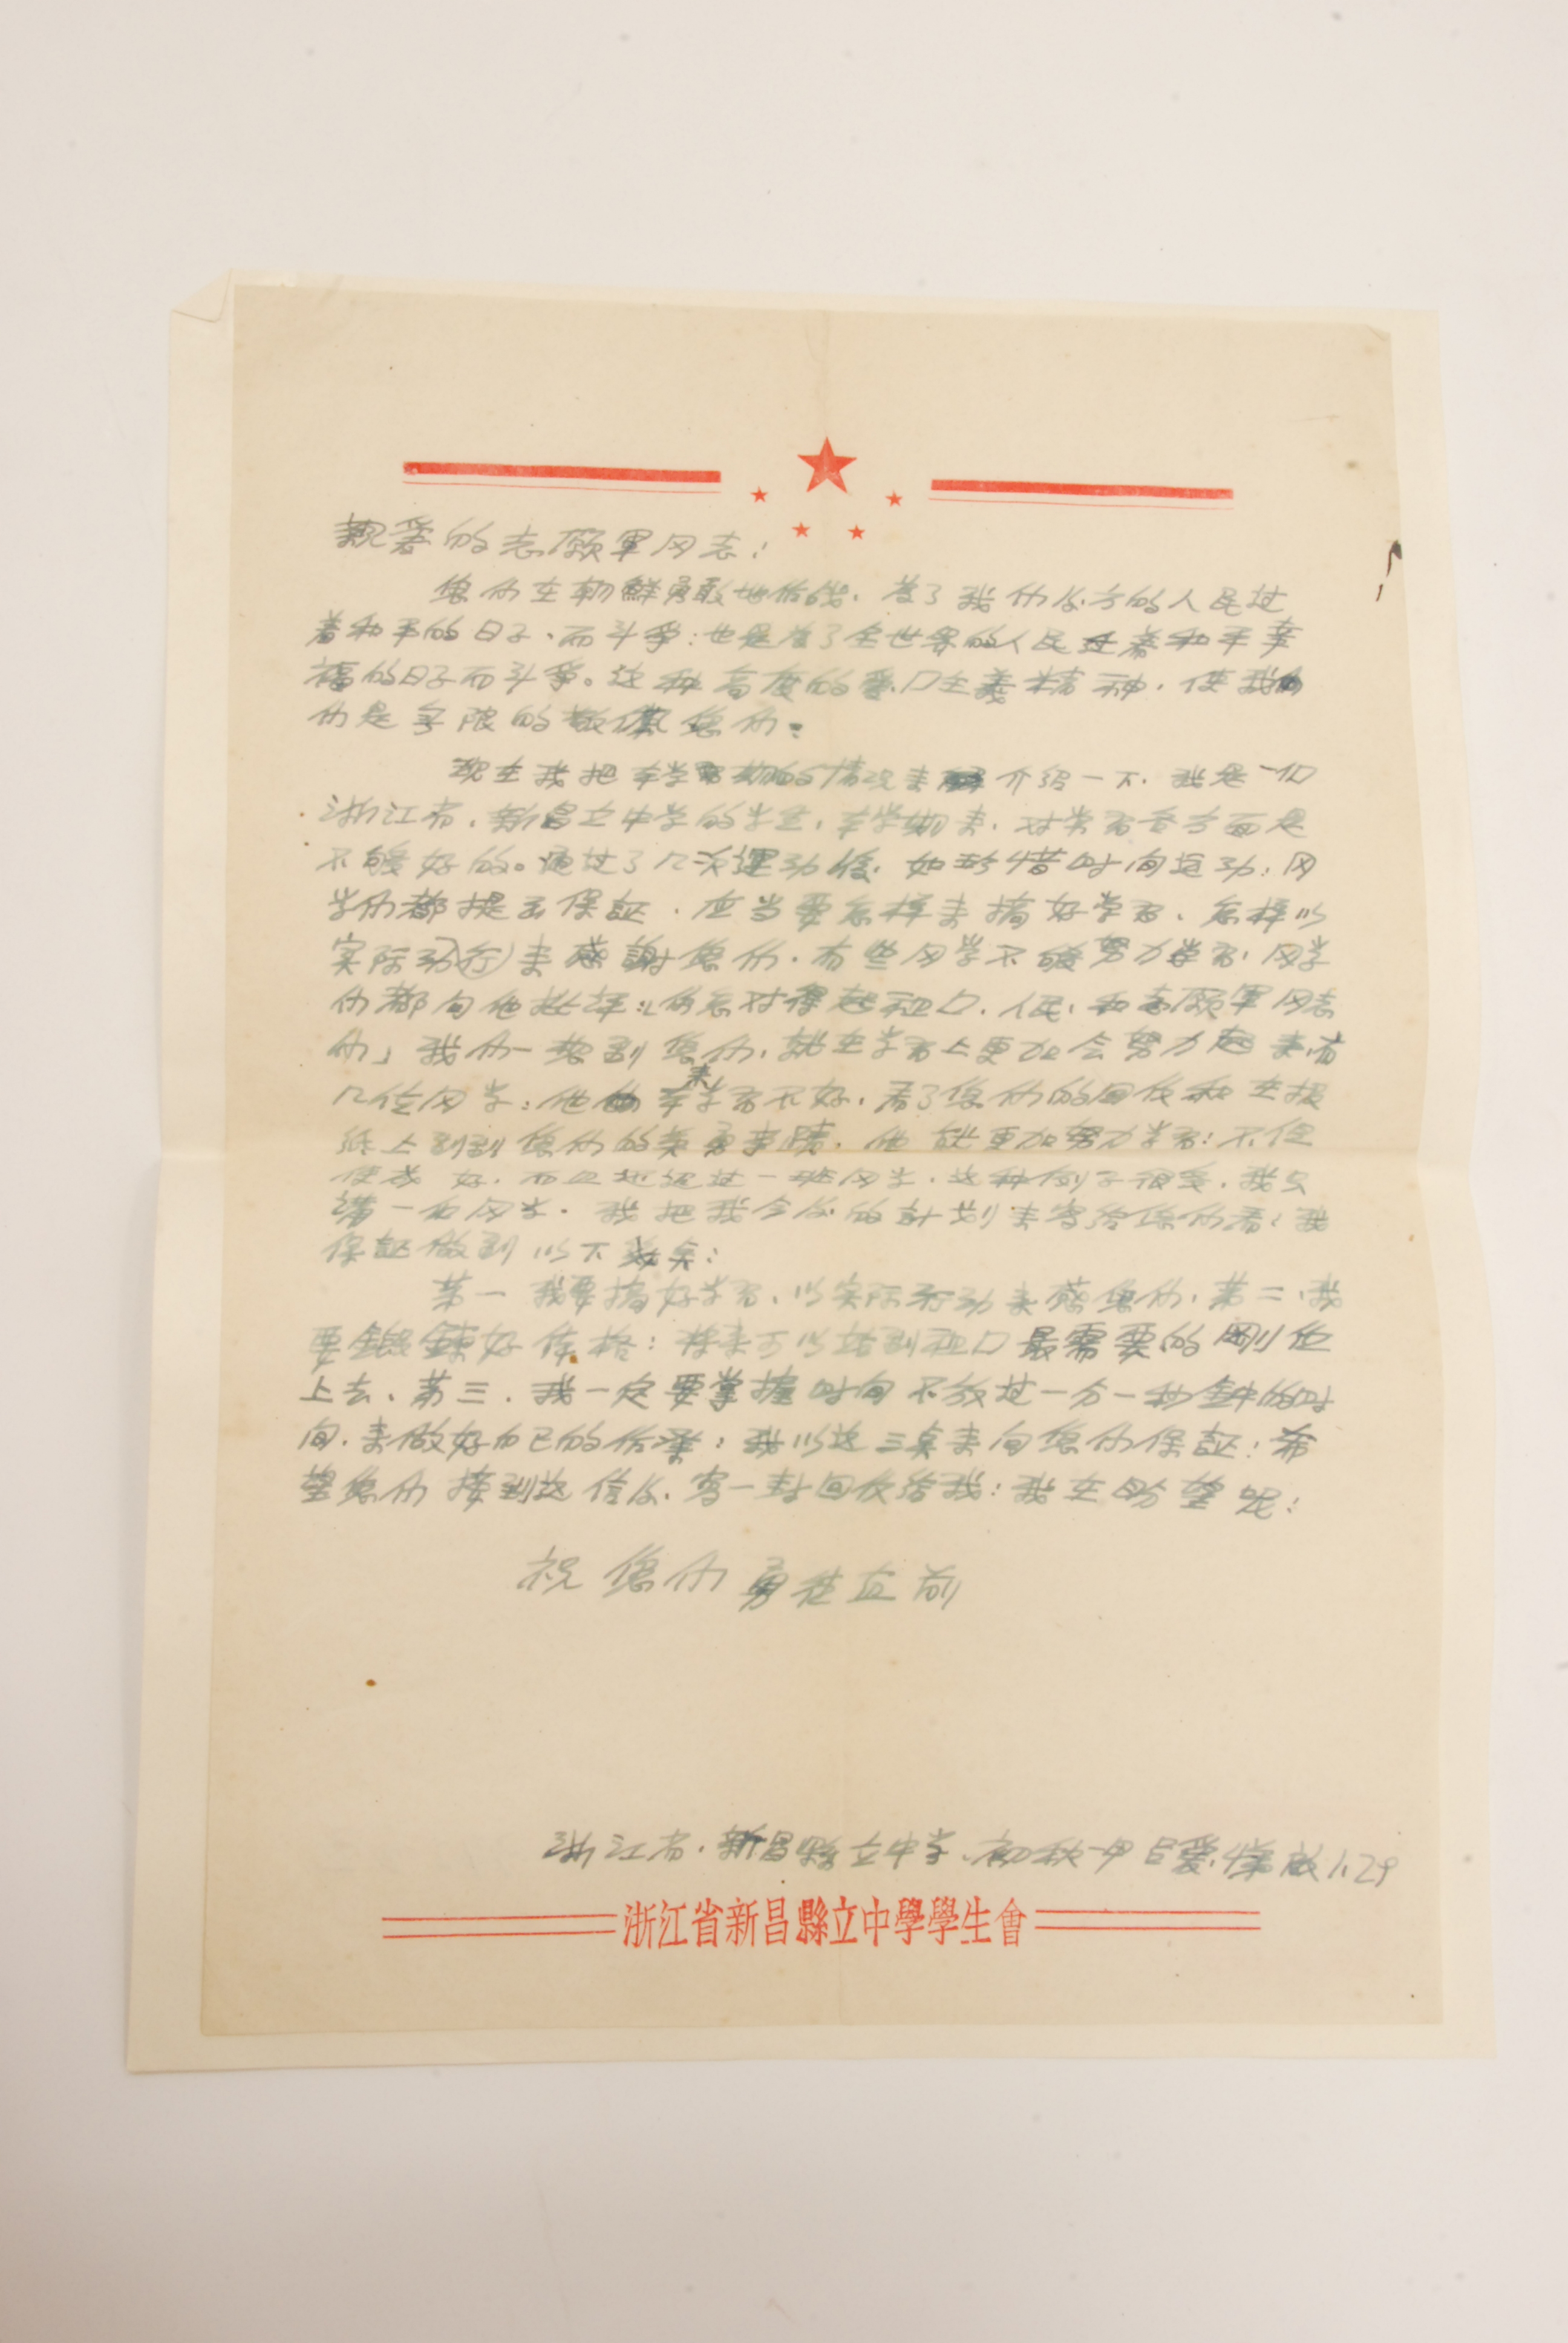 親爱的志願軍同志：
您们在朝鮮勇敢地作战．为了我们后方的人民过
着和平的日子．而斗爭：也是为了全世界的人民过着和平幸
福的日子而斗爭。这种高度的爱口主義精神．使我
们是无限的敬佩您们：
现在我把本学期的情况来介绍一下．我是一个
浙江省．新昌立中学的学生．本学期来．对学习各方面是
不够好的。通过了几次運动後．如珍惜时间运动：同
学们都提出保証．应当要怎样来搞好学习、怎样以
实际动行来感謝您们．有些同学不够努力学习．同学
们都向他批评：「你怎对得起祖口．人民．和志願軍同志
们」我们一想到您们．就在学习上更加会努力起来．有
几位同学：他本来学习不好．看了您们的回信和在报
纸上到您们的英勇事蹟．他就更加努力学习：不但
使成好．而且还超过一班同学．这种例子很多．我只
講一个同学．我把我今后的計划来寄给您们看：我
保証做到以下幾点：
第一我要搞好学习、以实际行动来感您们．第二．我
要鍛鍊好体格：将来可以站到祖口最需要的刚位
上去．第三．我一定要掌握时间不放过一分一秒鈡的时
间．来做好自己的作業：我以这三点来向您们保証：希
望您们接到这信后．寄一封回信给我：我在盼望呢：
祝您们勇往直前
浙江省．新昌縣立中学．初秋一甲吕愛啟1.29
浙江省新昌縣立中學學生會